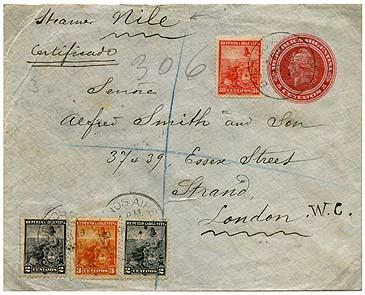 Steamer Nile
Certificado
306
REPUBLICA ARGENTINA
CENTAVOS
REPUBLICA ARGENTINA
CENTAVOS
Senore
Alfred Smith and Son
37 & 39, Essex Street
Strand,
London W.C.
OS AIRES
REPUBLICA ARGENTINA
2 CENTAVOS 2
REPUBLICA ARGENTINA
3 CENTAVOS 3
REPUBLICA ARGENTINA
2 CENTAVOS 2